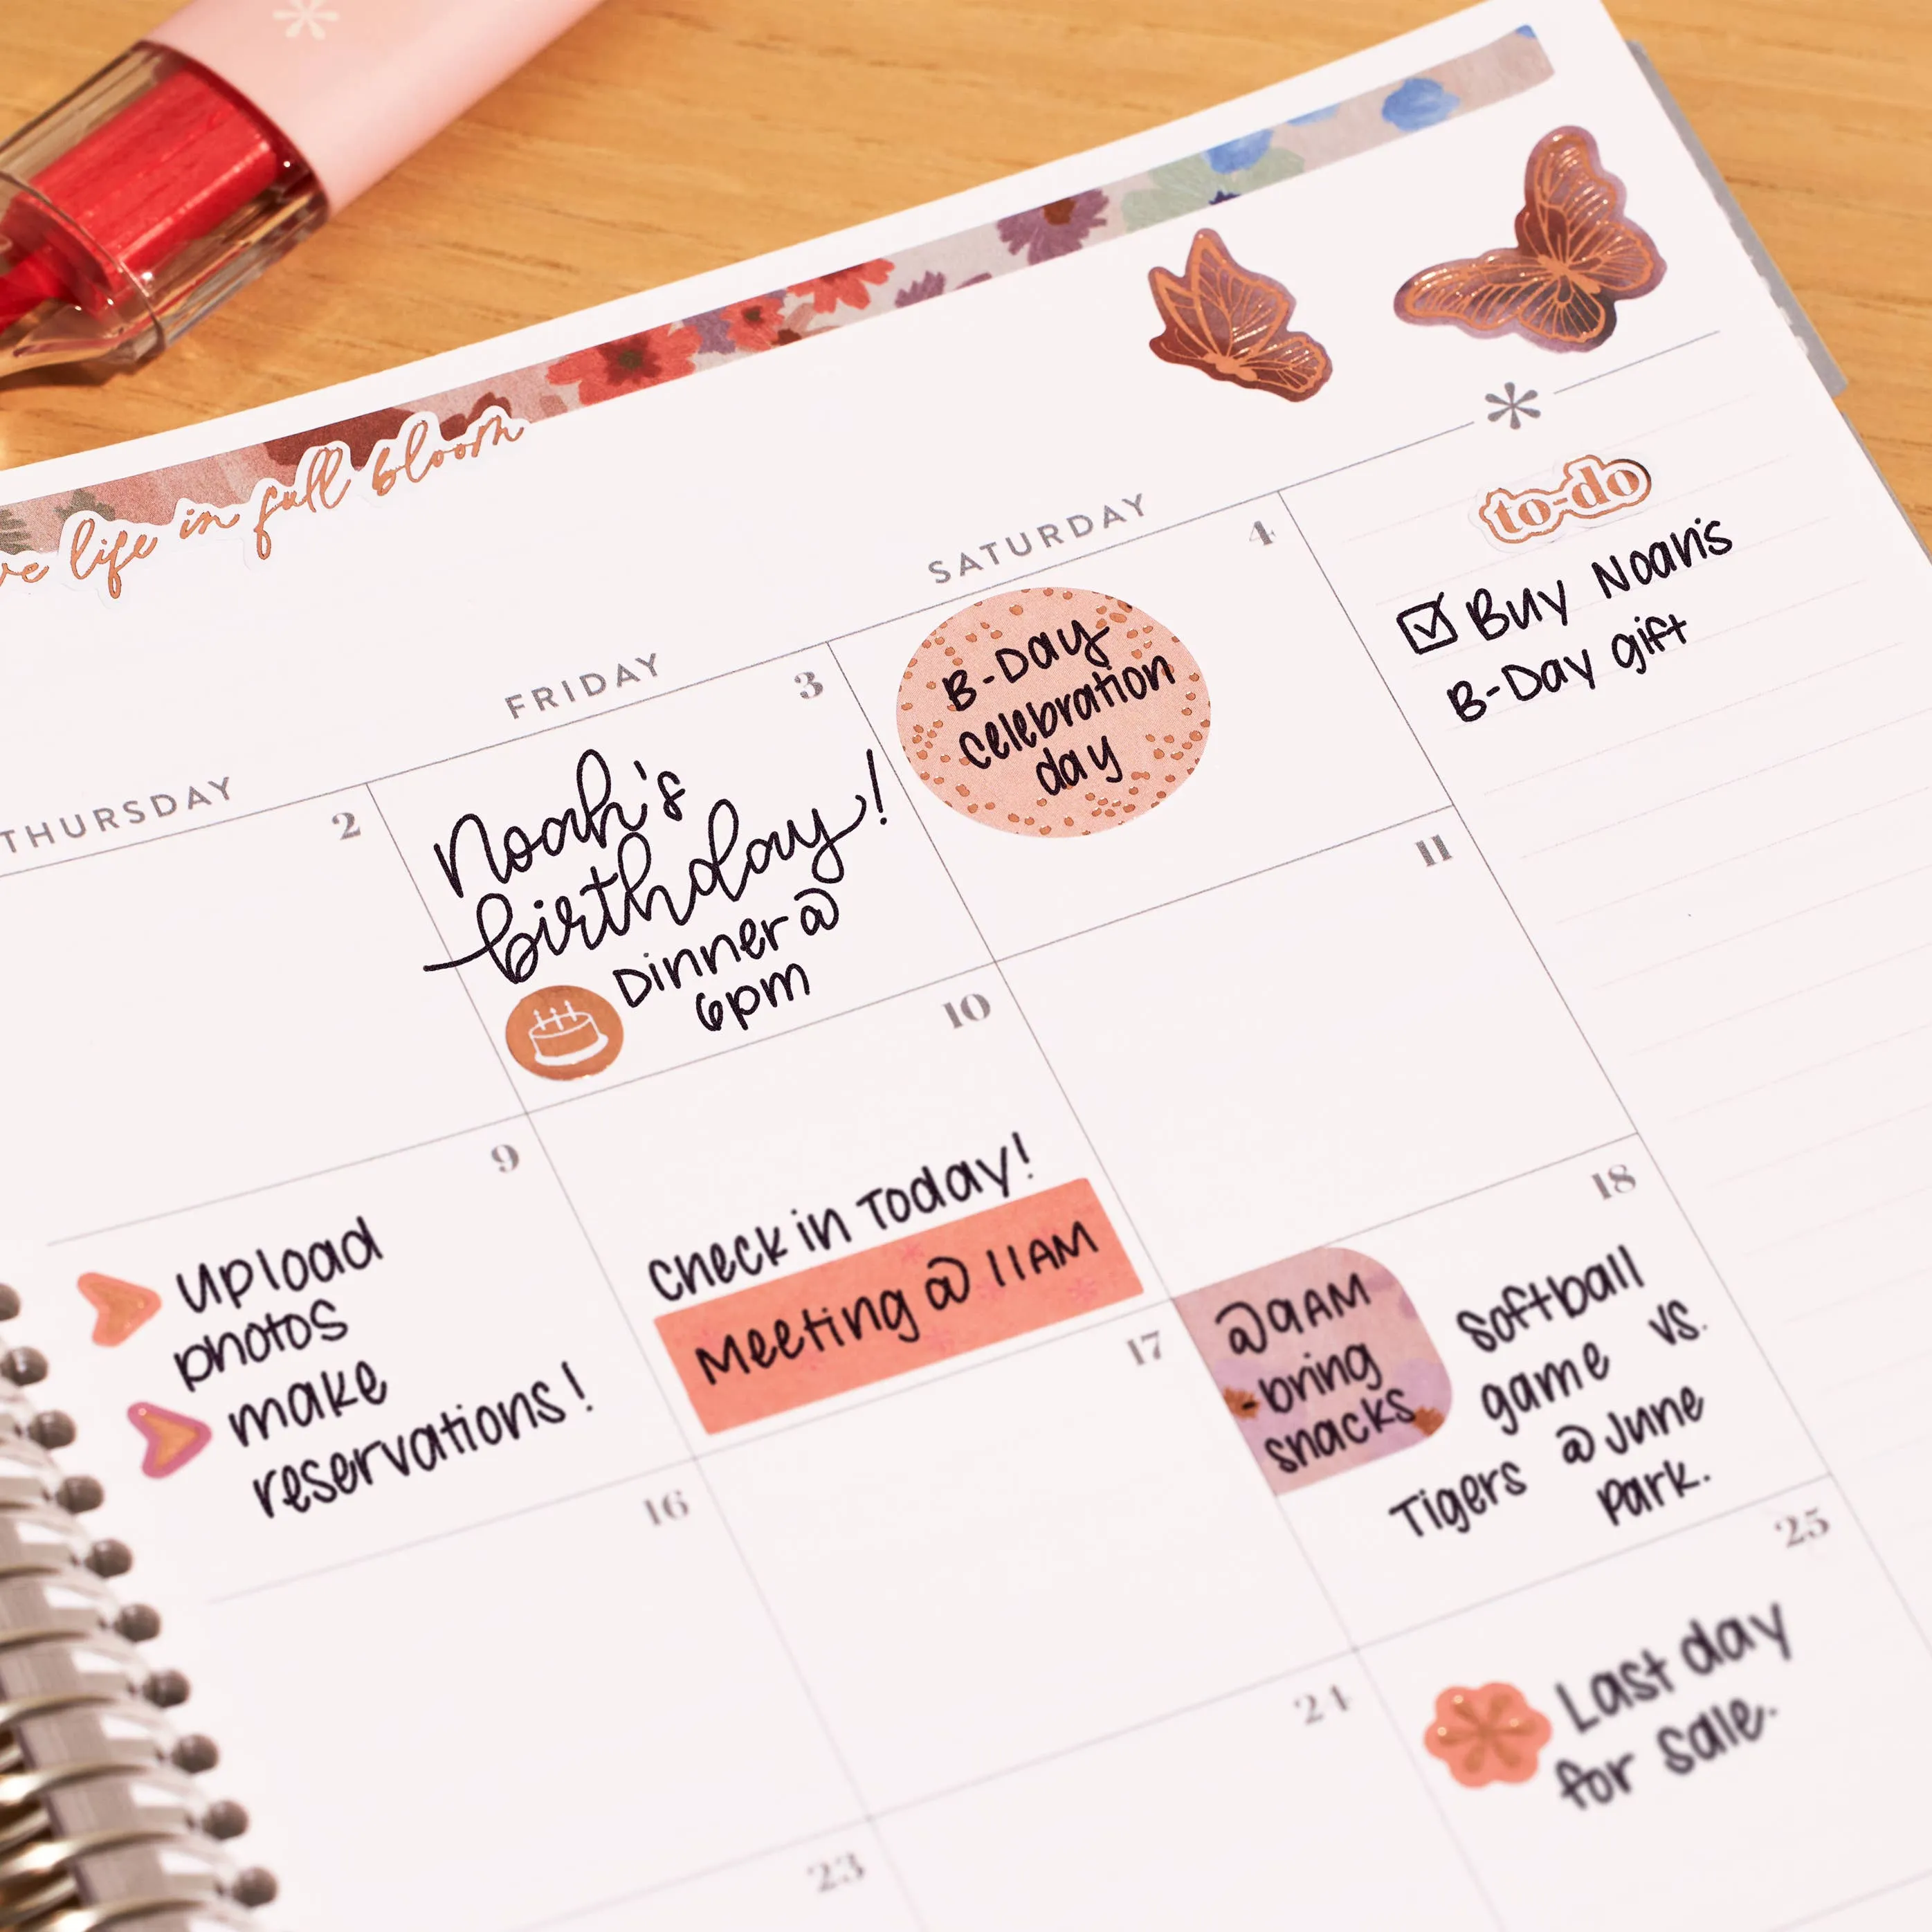 life in full bloom
THURSDAY
FRIDAY
SATURDAY
2
3
Noah's
birthday!
Dinner @
6pm
4
B-Day
celebration
day
to-do
Buy Noah's
B-Day gift
9
upload
photos
make
reservations!
10
check in Today!
Meeting @ 11AM
11
16
17
18
@9AM
-bring
snacks
Softball
game vs.
Tigers @ June
Park.
23
24
25
Last day
for sale.